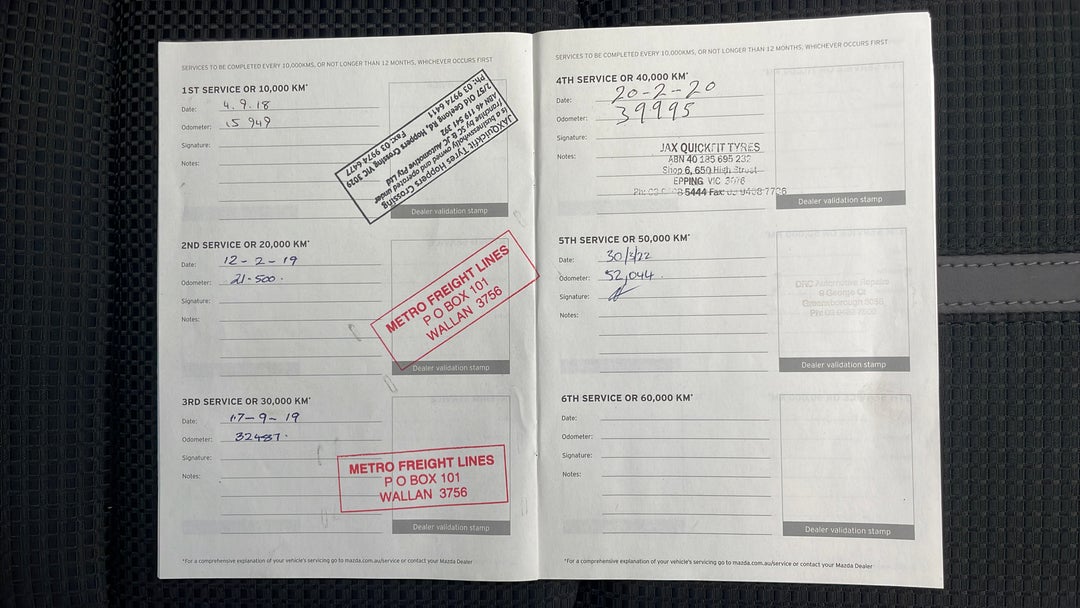 SERVICES TO BE COMPLETED EVERY 10,000KMS, OR NOT LONGER THAN 12 MONTHS, WHICHEVER OCCURS FIRST
1ST SERVICE OR 10,000 KM*
Date: 4.9.18
Odometer: 15 949
Signature:
Notes:
JAXQuickfit Tyres Hoppers Crossing
is a business wholly owned and operated under
franchise by SC & JC Automotive Pty Ltd
ABN 46 119 541 392
2/57 Old Geelong Rd, Hoppers Crossing VIC 3029
Ph: 03 9974 6411 Fax: 03 9974 6477
Dealer validation stamp
2ND SERVICE OR 20,000 KM*
Date: 12-2-19
Odometer: 21-500.
Signature:
Notes:
METRO FREIGHT LINES
P O BOX 101
WALLAN 3756
Dealer validation stamp
3RD SERVICE OR 30,000 KM*
Date: 17-9-19
Odometer: 32487.
Signature:
Notes:
METRO FREIGHT LINES
P O BOX 101
WALLAN 3756
Dealer validation stamp
*For a comprehensive explanation of your vehicle's servicing go to mazda.com.au/service or contact your Mazda Dealer
SERVICES TO BE COMPLETED EVERY 10,000KMS, OR NOT LONGER THAN 12 MONTHS, WHICHEVER OCCURS FIRST
4TH SERVICE OR 40,000 KM*
Date: 20-2-20
Odometer: 39995
Signature:
Notes:
JAX QUICKFIT TYRES
ABN 40 185 695 232
Shop 6, 650 High Street
EPPING VIC 3076
Ph: 03 5444 Fax: 03 9408 7726
Dealer validation stamp
5TH SERVICE OR 50,000 KM*
Date: 30/3/22
Odometer: 52,044
Signature:
Notes:
Automotive Repairs
9 George Ct
Greensborough 3088
Dealer validation stamp
6TH SERVICE OR 60,000 KM*
Date:
Odometer:
Signature:
Notes:
Dealer validation stamp
*For a comprehensive explanation of your vehicle's servicing go to mazda.com.au/service or contact your Mazda Dealer